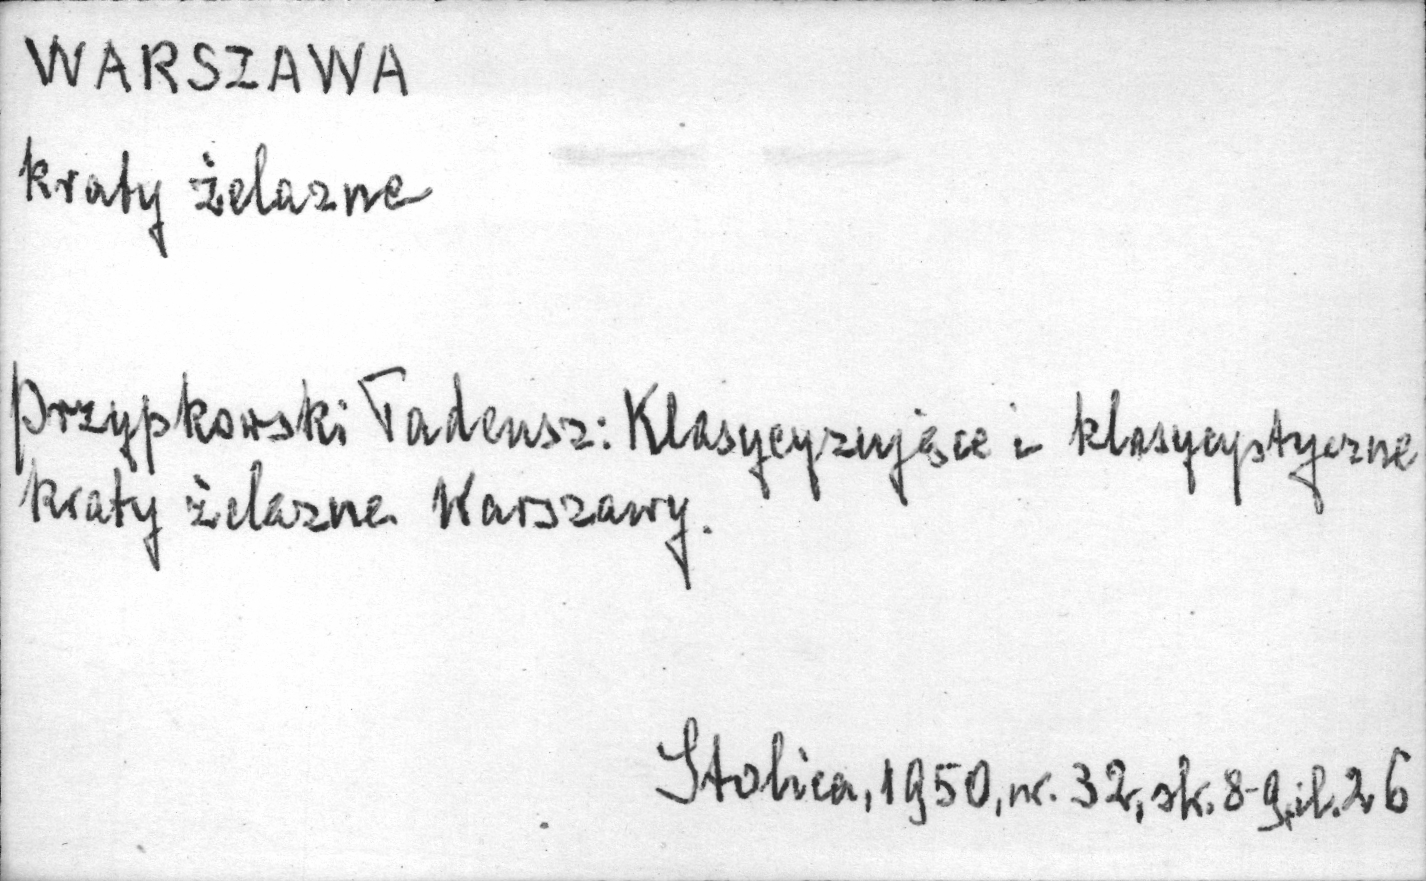 WARSZAWA
kraty żelazne
Przypkowski Tadeusz: Klasycyzujące i klasycystyczne
kraty żelazne Warszawy.
Stolica, 1950, nr. 32, sk. 8-9, il. 26